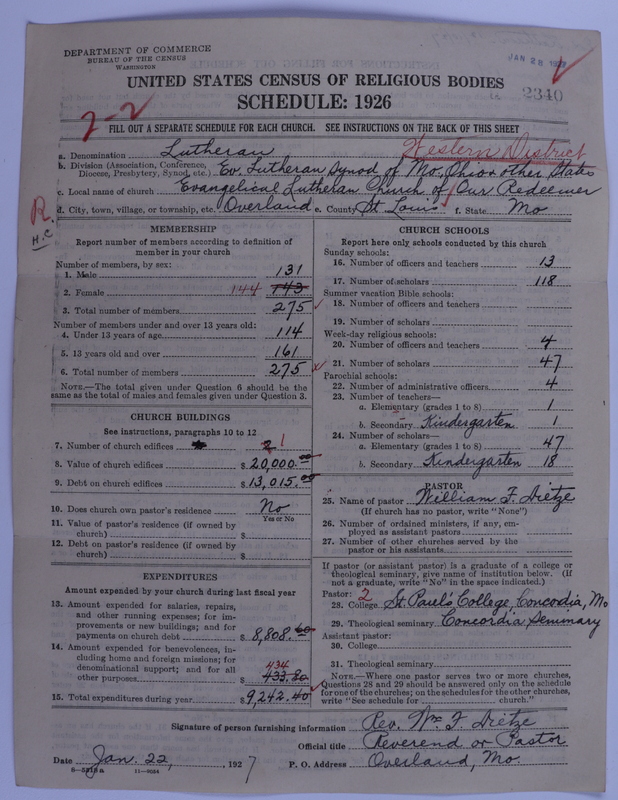 DEPARTMENT OF COMMERCE
BUREAU OF THE CENSUS
WASHINGTON
JAN 28 1927
2340
UNITED STATES CENSUS OF RELIGIOUS BODIES
SCHEDULE: 1926
2-2
FILL OUT A SEPARATE SCHEDULE FOR EACH CHURCH. SEE INSTRUCTIONS ON THE BACK OF THIS SHEET
Western District
a. Denomination Lutheran
b. Division (Association, Conference, Diocese, Presbytery, Synod, etc.) Ev. Lutheran Synod of Mo. Ohio & other States
c. Local name of church Evangelical Lutheran Church of Our Redeemer
d. City, town, village, or township, etc. Overland e. County St Louis f. State Mo
R.
H.C
MEMBERSHIP
Report number of members according to definition of member in your church
Number of members, by sex:
1. Male 131
2. Female 144 143
3. Total number of members 275
Number of members under and over 13 years old:
4. Under 13 years of age 114
5. 13 years old and over 161
6. Total number of members 275
NOTE.—The total given under Question 6 should be the same as the total of males and females given under Question 3.
CHURCH BUILDINGS
See instructions, paragraphs 10 to 12
7. Number of church edifices 2 1
8. Value of church edifices $20,000.00
9. Debt on church edifices $13,015.00
10. Does church own pastor's residence No
Yes or No
11. Value of pastor's residence (if owned by church) $
12. Debt on pastor's residence (if owned by church) $
EXPENDITURES
Amount expended by your church during last fiscal year
13. Amount expended for salaries, repairs, and other running expenses; for improvements or new buildings; and for payments on church debt $8,808.60
14. Amount expended for benevolences, including home and foreign missions; for denominational support; and for all other purposes $ 434 433.80
15. Total expenditures during year $9,242.40
CHURCH SCHOOLS
Report here only schools conducted by this church
Sunday schools:
16. Number of officers and teachers 13
17. Number of scholars 118
Summer vacation Bible schools:
18. Number of officers and teachers
19. Number of scholars
Week-day religious schools:
20. Number of officers and teachers 4
21. Number of scholars 47
Parochial schools:
22. Number of administrative officers 4
23. Number of teachers—
a. Elementary (grades 1 to 8) 1
b. Secondary Kindergarten 1
24. Number of scholars—
a. Elementary (grades 1 to 8) 47
b. Secondary Kindergarten 18
PASTOR
25. Name of pastor William F. Dietze
(If church has no pastor, write "None")
26. Number of ordained ministers, if any, employed as assistant pastors
27. Number of other churches served by the pastor or his assistants
If pastor (or assistant pastor) is a graduate of a college or theological seminary, give name of institution below. (If not a graduate, write "No" in the space indicated.)
Pastor: 2
28. College St. Paul's College, Concodia, Mo
29. Theological seminary Concordia Seminary
Assistant pastor:
30. College
31. Theological seminary
NOTE.—Where one pastor serves two or more churches, Questions 28 and 29 should be answered only on the schedule for one of the churches; on the schedules for the other churches, write "See schedule for church."
Signature of person furnishing information Rev. Wm F. Dietze
Official title Reverend or Pastor
Date Jan. 22, 1927 P. O. Address Overland, Mo.
8—5319a 11—9034